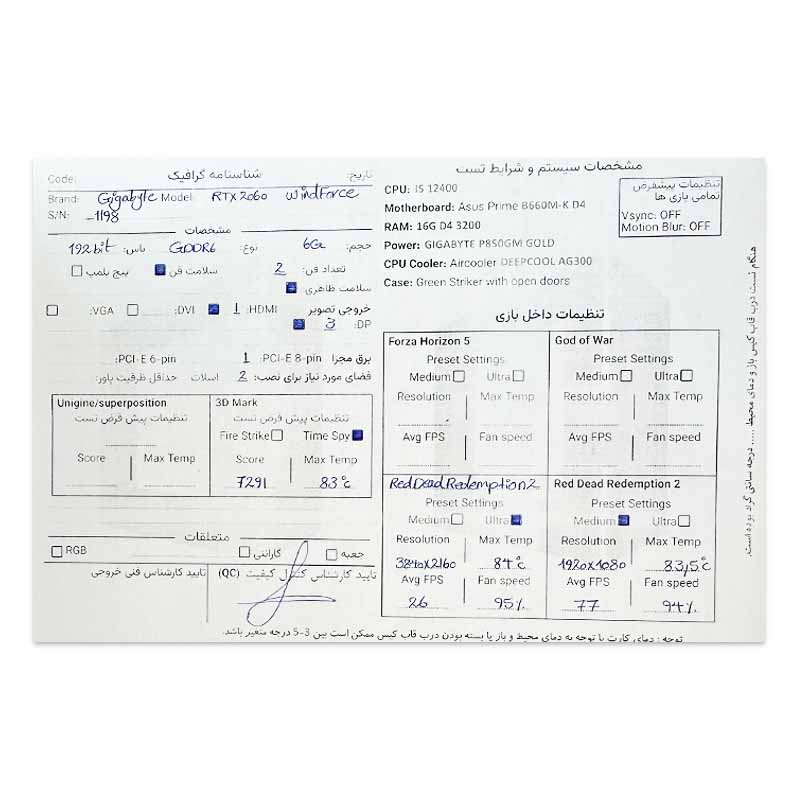 شناسنامه گرافیک
تاریخ:
Code:
Brand: Gigabyte Model: RTX 2060 WindForce
S/N: _1198
مشخصات
حجم: 6G نوع: GDDR6 باس: 192bit
تعداد فن: 2 سلامت فن پیچ پلمپ
سلامت ظاهری
خروجی تصویر HDMI: 1 DVI: VGA:
DP: 3
برق مجزا PCI-E 8-pin: 1 PCI-E 6-pin:
فضای مورد نیاز برای نصب: 2 اسلات حداقل ظرفیت پاور:
Unigine/superposition
تنظیمات پیش فرض تست
Score Max Temp
3D Mark
تنظیمات پیش فرض تست
Fire Strike Time Spy
Score Max Temp
7291 83°c
متعلقات
جعبه گارانتی RGB
تایید کارشناس کنترل کیفیت (QC)
تایید کارشناس فنی خروجی
مشخصات سیستم و شرایط تست
CPU: I5 12400
Motherboard: Asus Prime B660M-K D4
RAM: 16G D4 3200
Power: GIGABYTE P850GM GOLD
CPU Cooler: Aircooler DEEPCOOL AG300
Case: Green Striker with open doors
تنظیمات پیشفرض
تمامی بازی ها
Vsync: OFF
Motion Blur: OFF
تنظیمات داخل بازی
Forza Horizon 5
Preset Settings
Medium Ultra
Resolution Max Temp
Avg FPS Fan speed
God of War
Preset Settings
Medium Ultra
Resolution Max Temp
Avg FPS Fan speed
Red Dead Redemption 2
Preset Settings
Medium Ultra
Resolution Max Temp
3840x2160 84°c
Avg FPS Fan speed
26 95%
Red Dead Redemption 2
Preset Settings
Medium Ultra
Resolution Max Temp
1920x1080 83,5°c
Avg FPS Fan speed
77 94%
هنگام تست درب قاب کیس باز و دمای محیط ..... درجه سانتی گراد بوده است.
توجه: دمای کارت با توجه به دمای محیط و باز یا بسته بودن درب قاب کیس ممکن است بین 3-5 درجه متغیر باشد.